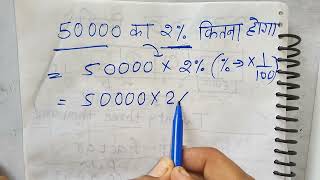 50000 का 2% कितना होगा
= 50000 × 2% (% → × 1/100)
= 50000 × 2